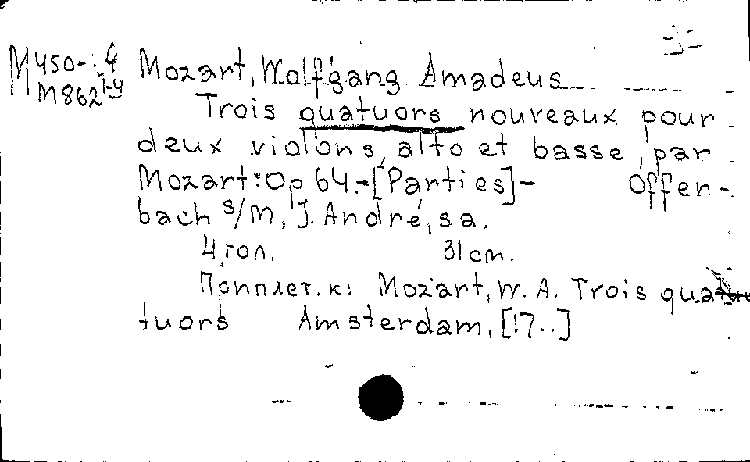 M450-:4 Mozart, Wolfgang Amadeus
M862 1-4
Trois quatuors nouveaux pour
deux violons, alto et basse, par
Mozart: Op 64.-[Parties]- Offen-
bach s/M, J. André, s.a.
4 гол. 31 cm.
Припплет. к: Mozart, W. A. Trois qua
tuors Amsterdam, [17..]